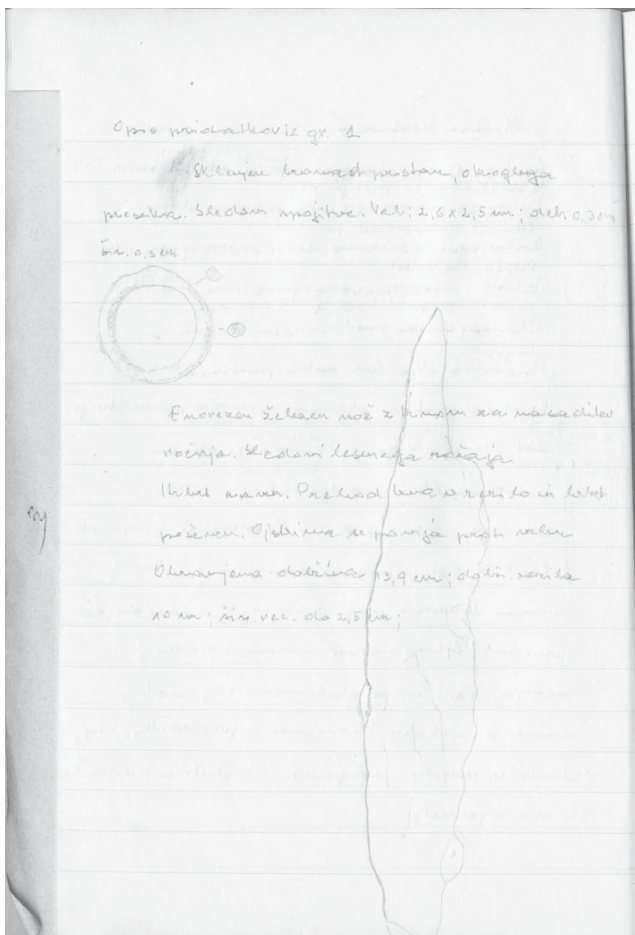 Opis pridatkov iz gr. 1
Sklenjen bronast prstan, okroglega
preseka. Sledovi spojitve. Vel.: 2,6 x 2,5 cm; deb. 0,3 cm
šir. 0,3 cm
Enorezen železen nož z trnom za nasaditev
ročaja. Sledovi lesenega ročaja
Hrbet raven. Prehod trna v rezilo in hrbet
poševen. Ojstrina se poviја proti
Ohranjena dolžina 13,9 cm; dolž. rezila
10 cm; šir. rez. do 2,5 cm;